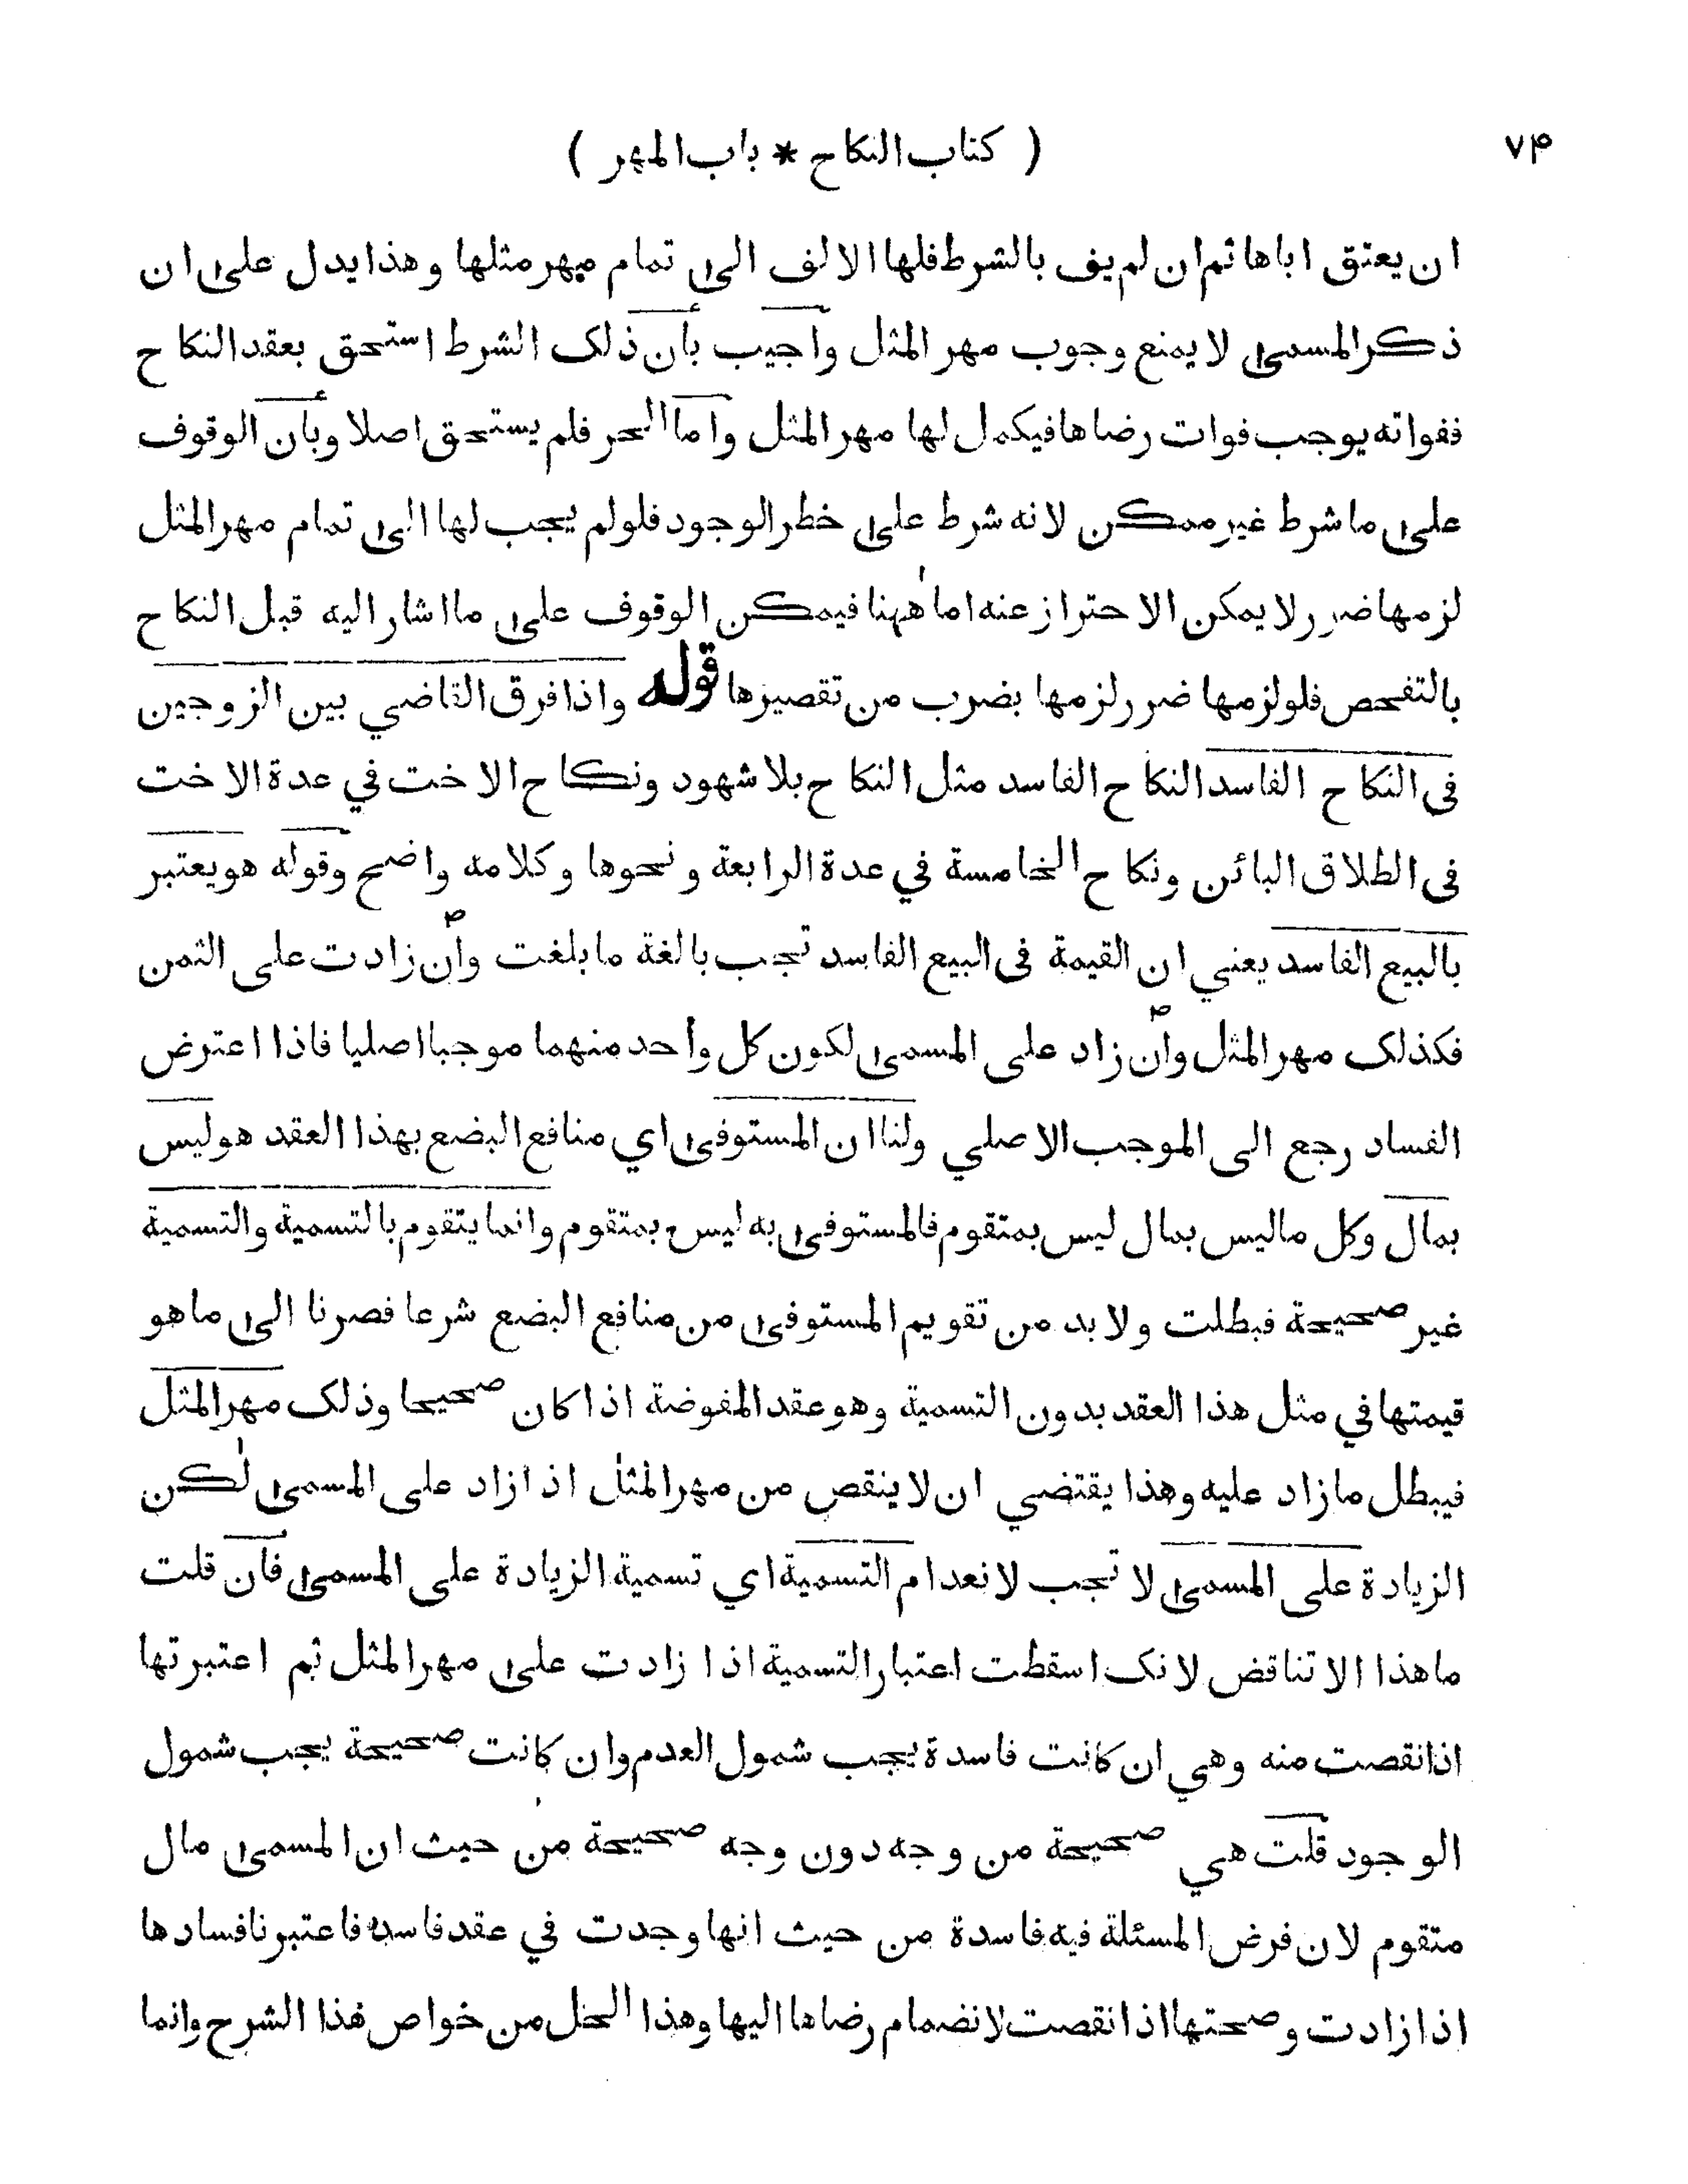 ( كتاب النكاح * باب المهر ) ٧۴
ان يعتق اباها ثم ان لم يف بالشرط فلها الالف الى تمام مهر مثلها وهذا يدل على ان
ذكر المسمى لا يمنع وجوب مهر المثل وأجيب بأن ذلك الشرط استحق بعقد النكاح
ففواته يوجب فوات رضاها فيكمل لها مهر المثل واما الحر فلم يستحق اصلا وبأن الوقوف
على ما شرط غير ممكن لانه شرط على خطر الوجود فلو لم يجب لها الى تمام مهر المثل
لزمها ضرر لا يمكن الاحتراز عنه اما ههنا فيمكن الوقوف على ما اشار اليه قبل النكاح
بالتفحص فلو لزمها ضرر لزمها بضرب من تقصيرها قوله واذا فرق القاضي بين الزوجين
فى النكاح الفاسد النكاح الفاسد مثل النكاح بلا شهود ونكاح الاخت في عدة الاخت
فى الطلاق البائن ونكاح الخامسة في عدة الرابعة ونحوها وكلامه واضح وقوله هو يعتبر
بالبيع الفاسد يعني ان القيمة فى البيع الفاسد تجب بالغة ما بلغت وأن زادت على الثمن
فكذلك مهر المثل وأن زاد على المسمى لكون كل واحد منهما موجبا اصليا فاذا اعترض
الفساد رجع الى الموجب الاصلي ولنا ان المستوفى اي منافع البضع بهذا العقد هو ليس
بمال وكل ما ليس بمال ليس بمتقوم فالمستوفى به ليس بمتقوم وانما يتقوم بالتسمية والتسمية
غير صحيحة فبطلت ولا بد من تقويم المستوفى من منافع البضع شرعا فصرنا الى ما هو
قيمتها في مثل هذا العقد بدون التسمية وهو عقد المفوضة اذا كان صحيحا وذلك مهر المثل
فيبطل ما زاد عليه وهذا يقتضي ان لا ينقص من مهر المثل اذا زاد على المسمى لٰكن
الزيادة على المسمى لا تجب لانعدام التسمية اي تسمية الزيادة على المسمى فان قلت
ما هذا الا تناقض لانك اسقطت اعتبار التسمية اذا زادت على مهر المثل ثم اعتبرتها
اذا نقصت منه وهي ان كانت فاسدة يجب شمول العدم وان كانت صحيحة يجب شمول
الوجود قلت هي صحيحة من وجه دون وجه صحيحة من حيث ان المسمى مال
متقوم لان فرض المسئلة فيه فاسدة من حيث انها وجدت في عقد فاسد فاعتبرنا فسادها
اذا زادت وصحتها اذا نقصت لانضمام رضاها اليها وهذا الحل من خواص هذا الشرح وانما